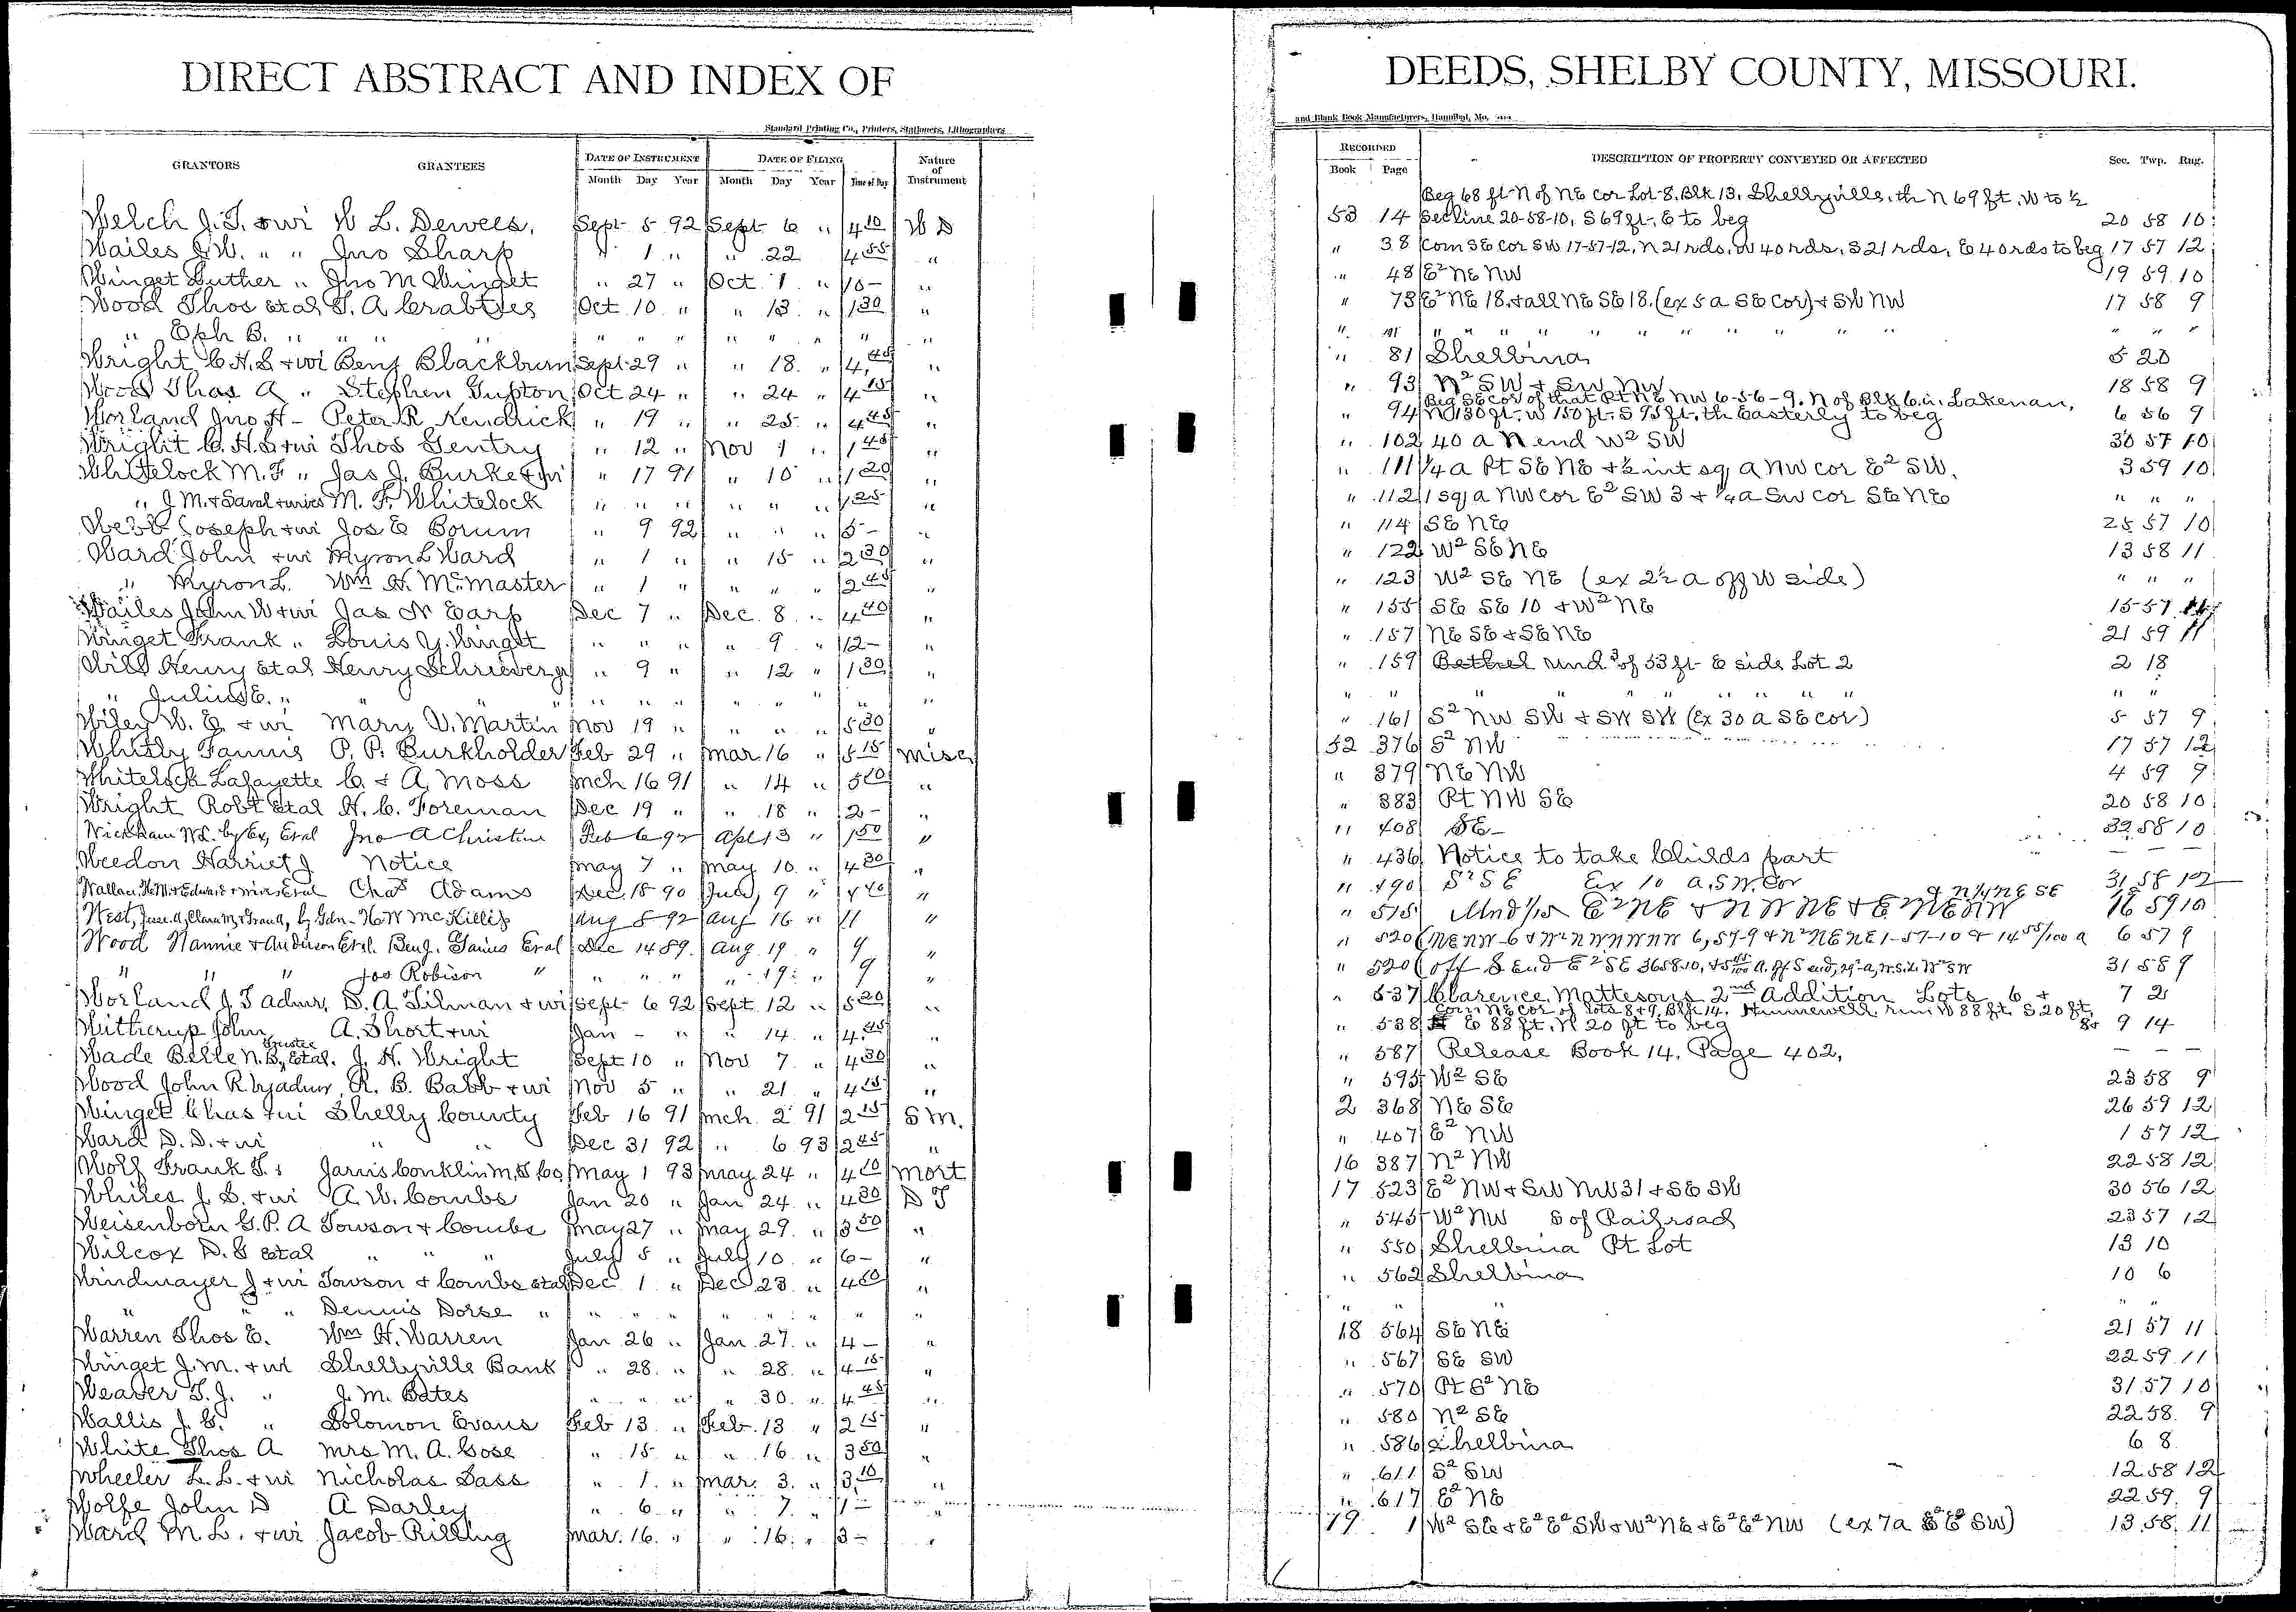 DIRECT ABSTRACT AND INDEX OF
Standard Printing Co., Printers, Stationers, Lithographers
GRANTORS GRANTEES DATE OF INSTRUMENT DATE OF FILING Nature of Instrument
Month Day Year Month Day Year Time of Day
Welch J. T. & wi W L. Dewees. Sept 5 92 Sept 6 " 4 10 W D
Wailes J. W. " " Jno Sharp " 1 " " 22 4 55 "
Winget Luther " Jno M Winget " 27 " Oct 1 " 10 - "
Wood Thos etal T. A. Crabtree Oct 10 " " 13 " 1 30 "
" Eph B. " " " " " " " " " " "
Wright C. H. S & wi Benj Blackburn Sept 29 " " 18 " 4 45 "
Wood Thos A " Stephen Gupton Oct 24 " " 24 " 4 15 "
Worland Jno H - Peter R Kendrick " 19 " " 25 " 4 45 "
Wright C. H. S & wi Thos Gentry " 12 " Nov 1 " 1 45 "
Whitelock M. F " Jas J. Burke & wi " 17 91 " 10 " 1 20 "
" J. M. & Saml & wives M. F. Whitelock " " " " " " 1 25 "
Webb Joseph & wi Jos E Borum " 9 92 " " " 5 - "
Ward John & wi Myron L Ward " 1 " " 15 " 2 30 "
" Myron L. Wm H. McMaster " 1 " " " " 2 45 "
Wailes John W & wi Jas N Earp Dec 7 " Dec. 8 " 4 40 "
Winget Frank " Louis Y. Winget " " " " 9 " 12 - "
Will Henry etal Henry Schriever " 9 " " 12 " 1 30 "
" Julius E. " " " " " " " " " "
Wiley W. E. & wi Mary V. Martin Nov 19 " " " " 5 30 "
Whitby Fannie P. P. Burkholder Feb 29 " Mar 16 " 5 15 Misc
Whitelock Lafayette C. & A. Moss Mch 16 91 " 14 " 5 00 "
Wright Robt etal H. C. Foreman Dec 19 " " 18 " 2 - "
Wickham W. L. by Ex, Etal Jno A Christine Feb 6 92 Apl 13 " 1 50 "
Weedon Harriet J Notice May 7 " May 10 " 4 30 "
Wallace, & Edward & wives Etal Chas Adams Dec. 18 90 June 9 " 4 40 "
West, Jesse A, Clara M, & Frank, by Gdn - H. W McKillip Aug 8 92 Aug 16 " 11 "
Wood Nannie & Anderson Etal. Benj. Gaines Etal Dec 14 89. Aug. 19 " 9 "
" " " Jos Robison " " " " " 19 " 9 "
Worland J. T admr, D. A. Tilman & wi Sept 6 92 Sept 12 " 5 20 "
Witherup John A. Short & wi Jan - " " 14 " 4 45 "
Wade Belle N. By Trustee Etal. J. H. Wright Sept 10 " Nov 7 " 4 30 "
Wood John R. by admr, R. B. Babb & wi Nov 5 " " 21 " 4 15 "
Winget Chas & wi Shelby County Feb 16 91 Mch. 2 91 2 15 S M.
Ward D. D. & wi " " Dec 31 92 " 6 93 2 45 "
Wolf Frank T. Jarvis Conklin M. T Co, May 1 93 May 24 " 4 10 Mort
Whiles J. S. & wi A. W. Combs Jan 20 " Jan 24 " 4 30 D T
Weisenborn G. P. A Towson & Combs May 27 " May 29 " 3 50 "
Wilcox D. S etal " " " July 5 " July 10 " 6 - "
Windmayer J & wi Towson & Combs etal Dec 1 " Dec 23 " 4 00 "
" " " Dennis Dorse " " " " " " " " "
Warren Thos E. Wm H. Warren Jan 26 " Jan 27 " 4 - "
Winget J. M. & wi Shelbyville Bank " 28 " " 28 " 4 15 "
Weaver T. J. " J. M. Bates " " " " 30 " 4 45 "
Wallis J. C. " Solomon Evans Feb 13 " Feb. 13 " 2 15 "
White Thos A Mrs M. A. Gose " 15 " " 16 " 3 50 "
Wheeler L. L. & wi Nicholas Sass " 1 " Mar. 3 " 3 10 "
Wolfe John D A Darley " 6 " " 7 " 1 - "
Ward M. L. & wi Jacob Rilling Mar. 16 " " 16 " 3 - "
DEEDS, SHELBY COUNTY, MISSOURI.
and Blank Book Manufacturers, Hannibal, Mo.
RECORDED DESCRIPTION OF PROPERTY CONVEYED OR AFFECTED Sec. Twp. Rng.
Book Page
Beg 68 ft N of NE cor Lot 8. Blk 13. Shelbyville, th N 69 ft. W to ½
53 14 Sec line 20-58-10, S 69 ft, E to beg 20 58 10
" 38 Com SE cor SW 17-57-12, N 21 rds, W 40 rds, S 21 rds, E 40 rds to beg 17 57 12
" 48 E² NE NW 19 59 10
" 73 E² NE 18. & all NE SE 18. (ex 5 a SE cor) & SW NW 17 58 9
" " " " " " " " " " " " " "
" 81 Shelbina 5 20
" 93 N² SW & SW NW 18 58 9
Beg SE cor of that Pt NE NW 6-56-9. N of Blk 6 in Lakenan,
" 94 N 130 ft, W 150 ft, S 95 ft, th Easterly to beg 6 56 9
" 102 40 a N end W² SW 30 57 10
" 111 ¼ a Pt SE NE & ½ int sq a NW cor E² SW. 3 59 10
" 112 1 sq a NW cor E² SW 3 & ¼ a SW cor SE NE " " "
" 114 SE NE 25 57 10
" 122 W² SE NE 13 58 11
" 123 W² SE NE (ex 2½ a off W side) " " "
" 155 SE SE 10 & W² NE 15 57
" 157 NE SE & SE NE 21 59 11
" 159 Bethel und of 53 ft E side Lot 2 2 18
" " " " " " " " " " "
" 161 S² NW SW & SW SW (Ex 30 a SE cor) 5 57 9
52 376 S² NW 17 57 12
" 379 NE NW 4 59 9
" 383 Pt NW SE 20 58 10
" 408 SE - 32 58 10
" 436 Notice to take Childs part - - -
" 490 S² SE Ex 10 a. SW. Cor 31 58 12
& N½ NE SE
" 515 Und 1/15 E² NE & N W NE & E² NE NW 16 59 10
" 520 (NE NW 6 & W² NW NW NW 6, 57-9 & N² NE NE 1-57-10 & 14 55/100 a 6 57 9
" 520 (off S End E² SE 36 58 10, 31 58 9
" 537 Clarence, Mattesons 2nd Addition Lots 6 & 7 2
Com NE cor of lots 8 & 9, Blk 14. Hunnewell, run W 88 ft, S 20 ft,
" 538 E 88 ft, N 20 ft to beg 8 & 9 14
" 587 Release Book 14. Page 402, - - -
" 595 W² SE 23 58 9
2 368 NE SE 26 59 12
" 407 E² NW 1 57 12
16 387 N² NW 22 58 12
17 523 E² NW & SW NW 31 & SE SW 30 56 12
" 545 W² NW S of Railroad 23 57 12
" 550 Shelbina Pt Lot 13 10
" 562 Shelbina 10 6
" " " " "
18 564 SE NE 21 57 11
" 567 SE SW 22 59 11
" 570 Pt S² NE 31 57 10
" 580 N² SE 22 58 9
" 586 Shelbina 6 8
" 611 S² SW 12 58 12
" 617 E² NE 22 59 9
19 1 W² SE & E² E² SW & W² NE & E² E² NW (ex 7 a E² SW) 13 58 11